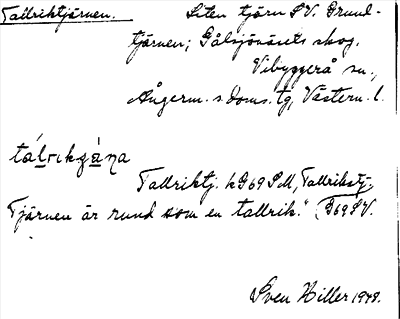 Tallriktjärnen. Liten tjärn S.V. Grund-
tjärnen; Gålsjönäsets skog.
Vibyggerå sn.,
Ångerm. s. doms. tg, Västern. l.
tálrikgà̱na
Tallriktj. kG69SM, Tallrikstj.
Tjärnen är rund som en tallrik." G69SV.
Sven Hiller 1948.